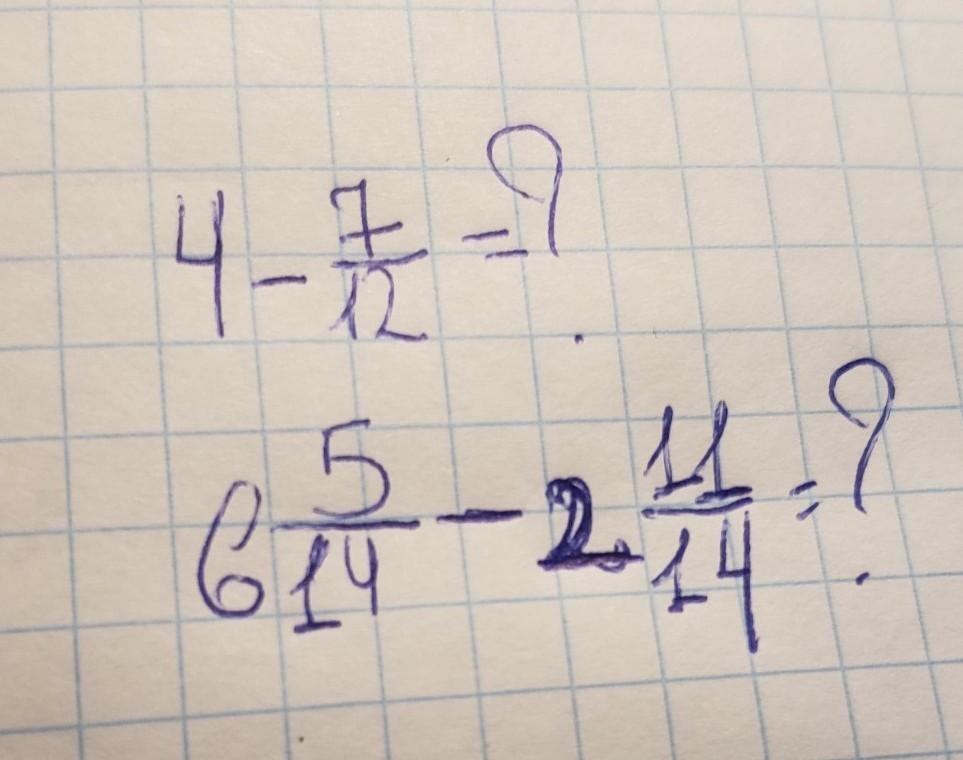 4 - 7/12 = ?
6 5/14 - 2 11/14 = ?